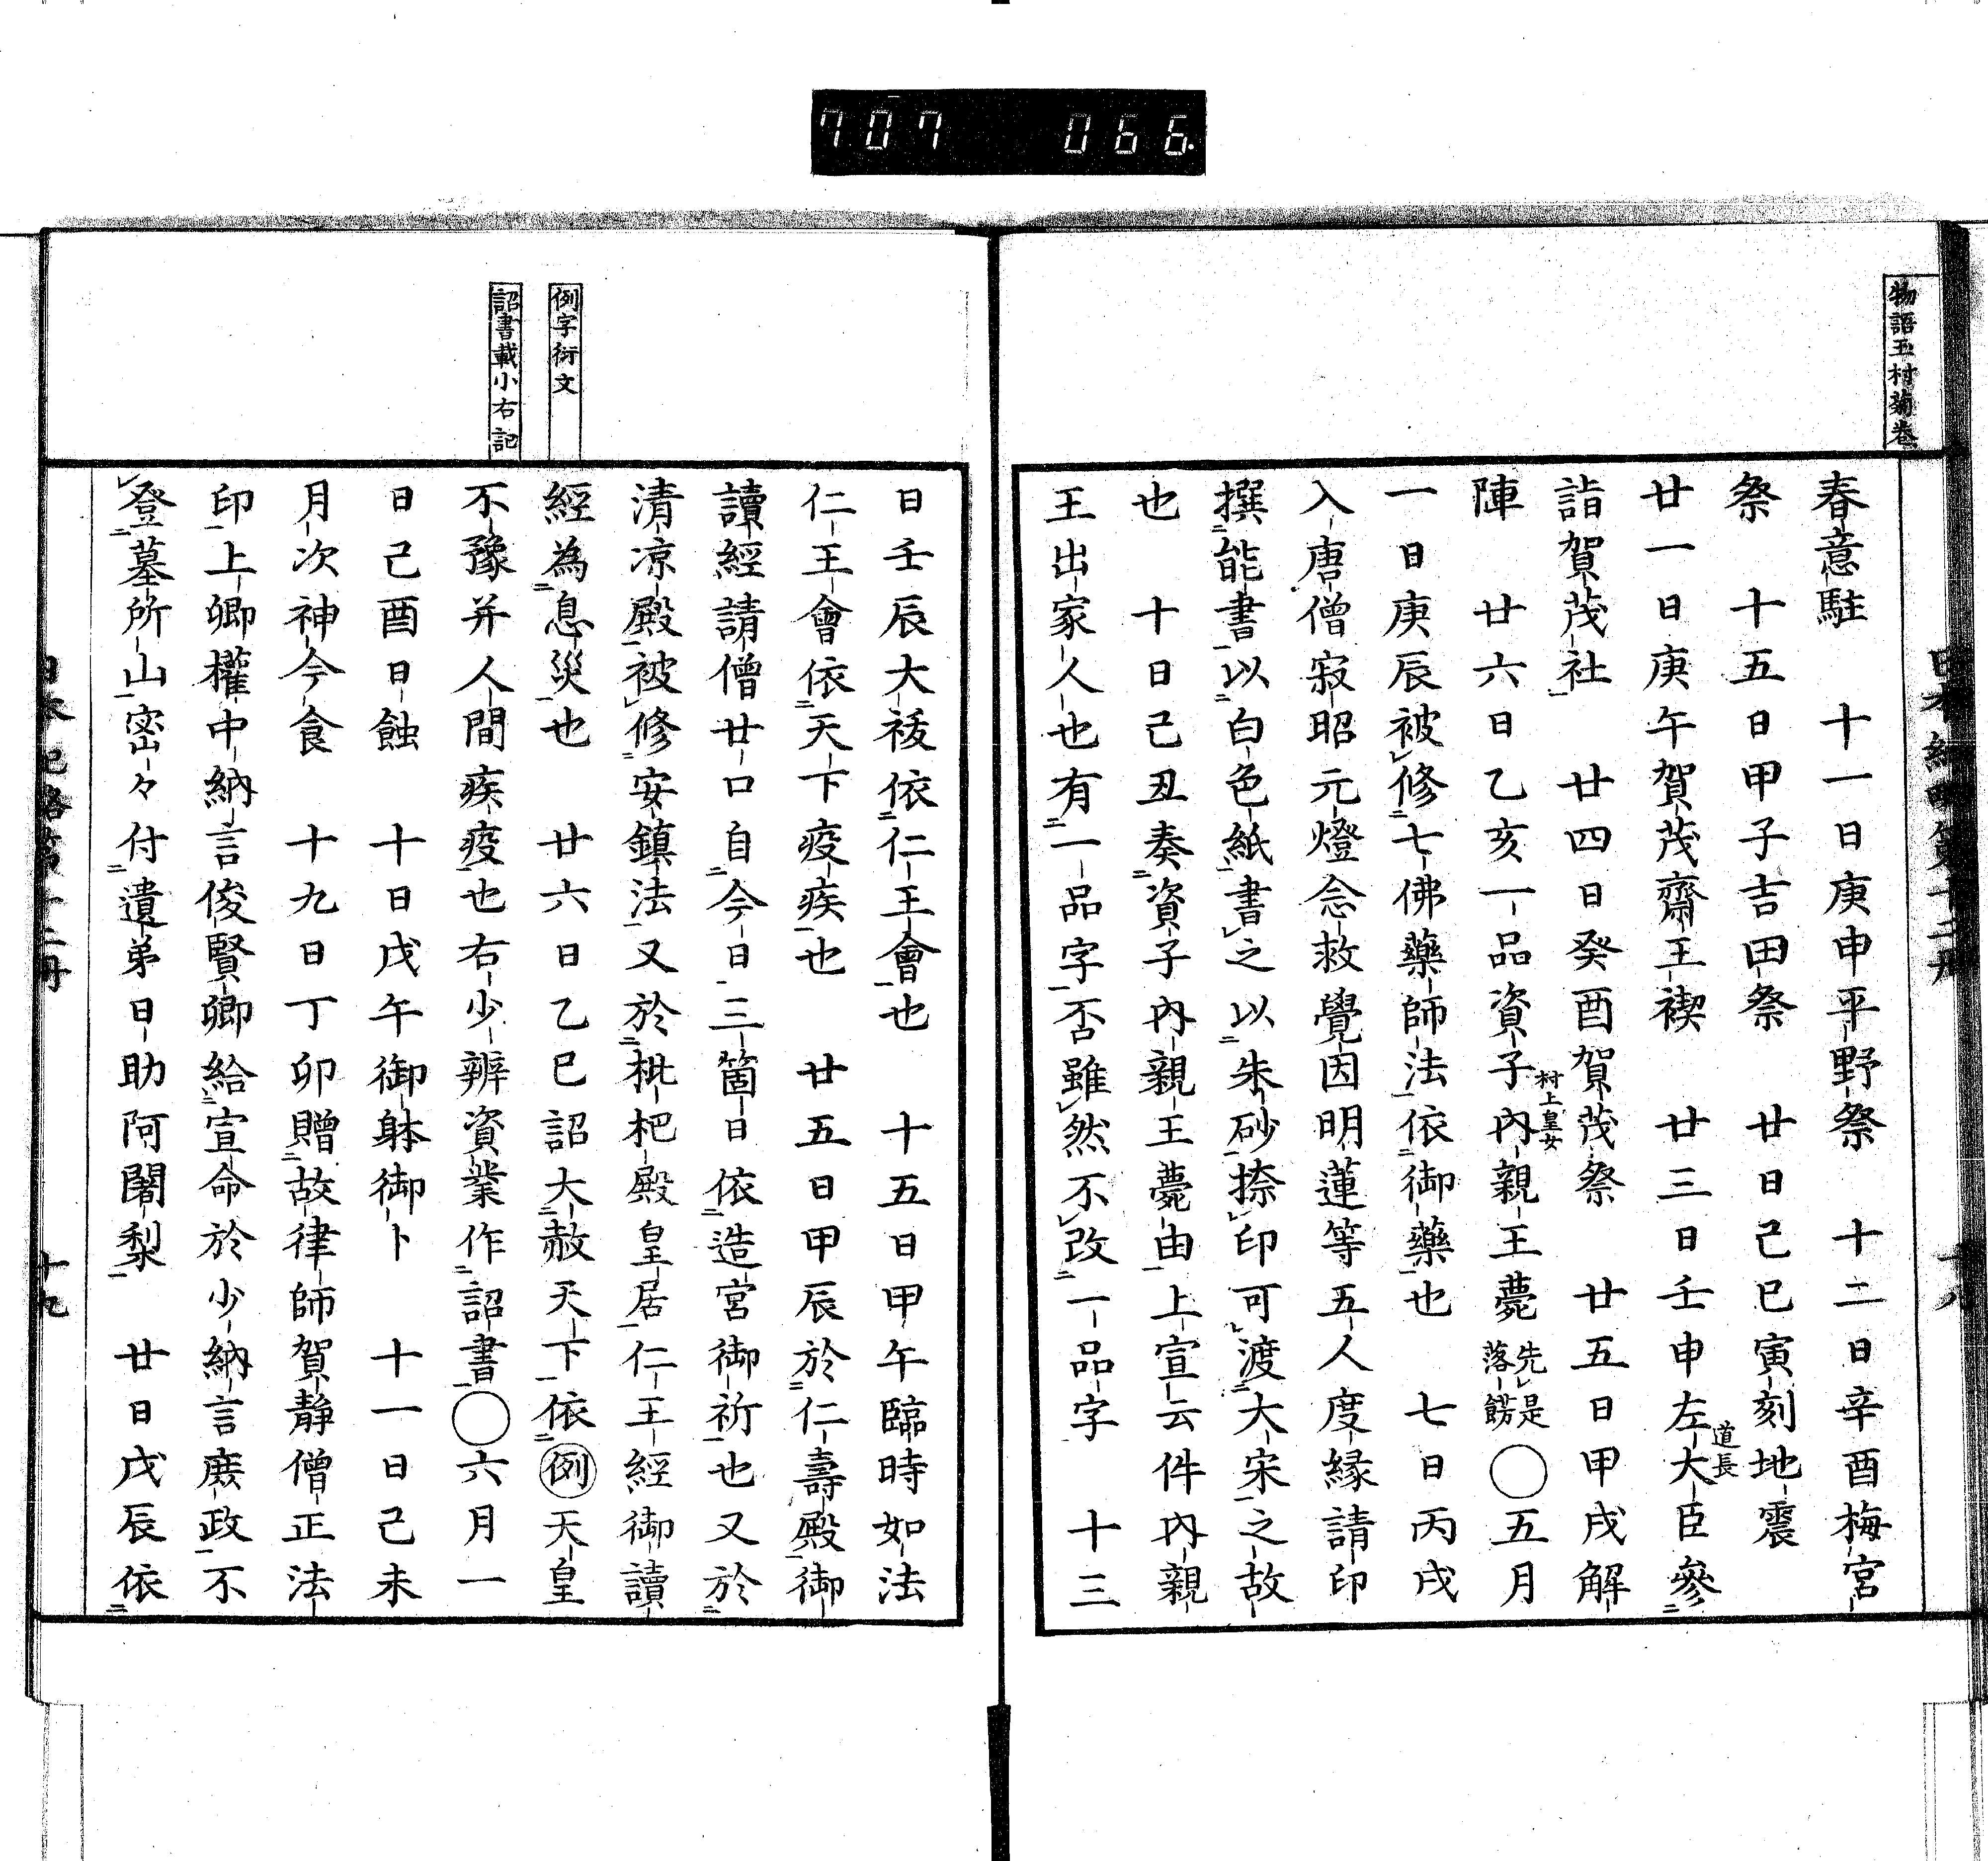 707 066.
物語玉村菊巻
春意駐　十一日庚申平野祭　十二日辛酉梅宮
祭　十五日甲子吉田祭　廿日己巳寅刻地震
廿一日庚午賀茂齋王禊　廿三日壬申左大臣參
道長
詣賀茂社　廿四日癸酉賀茂祭　廿五日甲戌解
陣　廿六日乙亥一品資子內親王薨先是落餝○五月
村上皇女
一日庚辰被修七佛藥師法依御藥也　七日丙戌
入唐僧寂昭元燈念救覺因明蓮等五人度緣請印
撰能書以白色紙書之以朱砂捺印可渡大宋之故
也　十日己丑奏資子內親王薨由上宣云件內親
王出家人也有一品字否雖然不改一品字　十三
例字衍文
詔書載小右記
日壬辰大祓依仁王會也　十五日甲午臨時如法
仁王會依天下疫疾也　廿五日甲辰於仁壽殿御
讀經請僧廿口自今日三箇日依造宮御祈也又於
清凉殿被修安鎮法又於枇杷殿皇居仁王經御讀
經為息災也　廿六日乙巳詔大赦天下依例天皇
不豫并人間疾疫也右少辨資業作詔書○六月一
日己酉日蝕　十日戊午御躰御卜　十一日己未
月次神今食　十九日丁卯贈故律師賀静僧正法
印上卿權中納言俊賢卿給宣命於少納言庶政不
登墓所山密々付遺弟日助阿闍梨　廿日戊辰依
十九